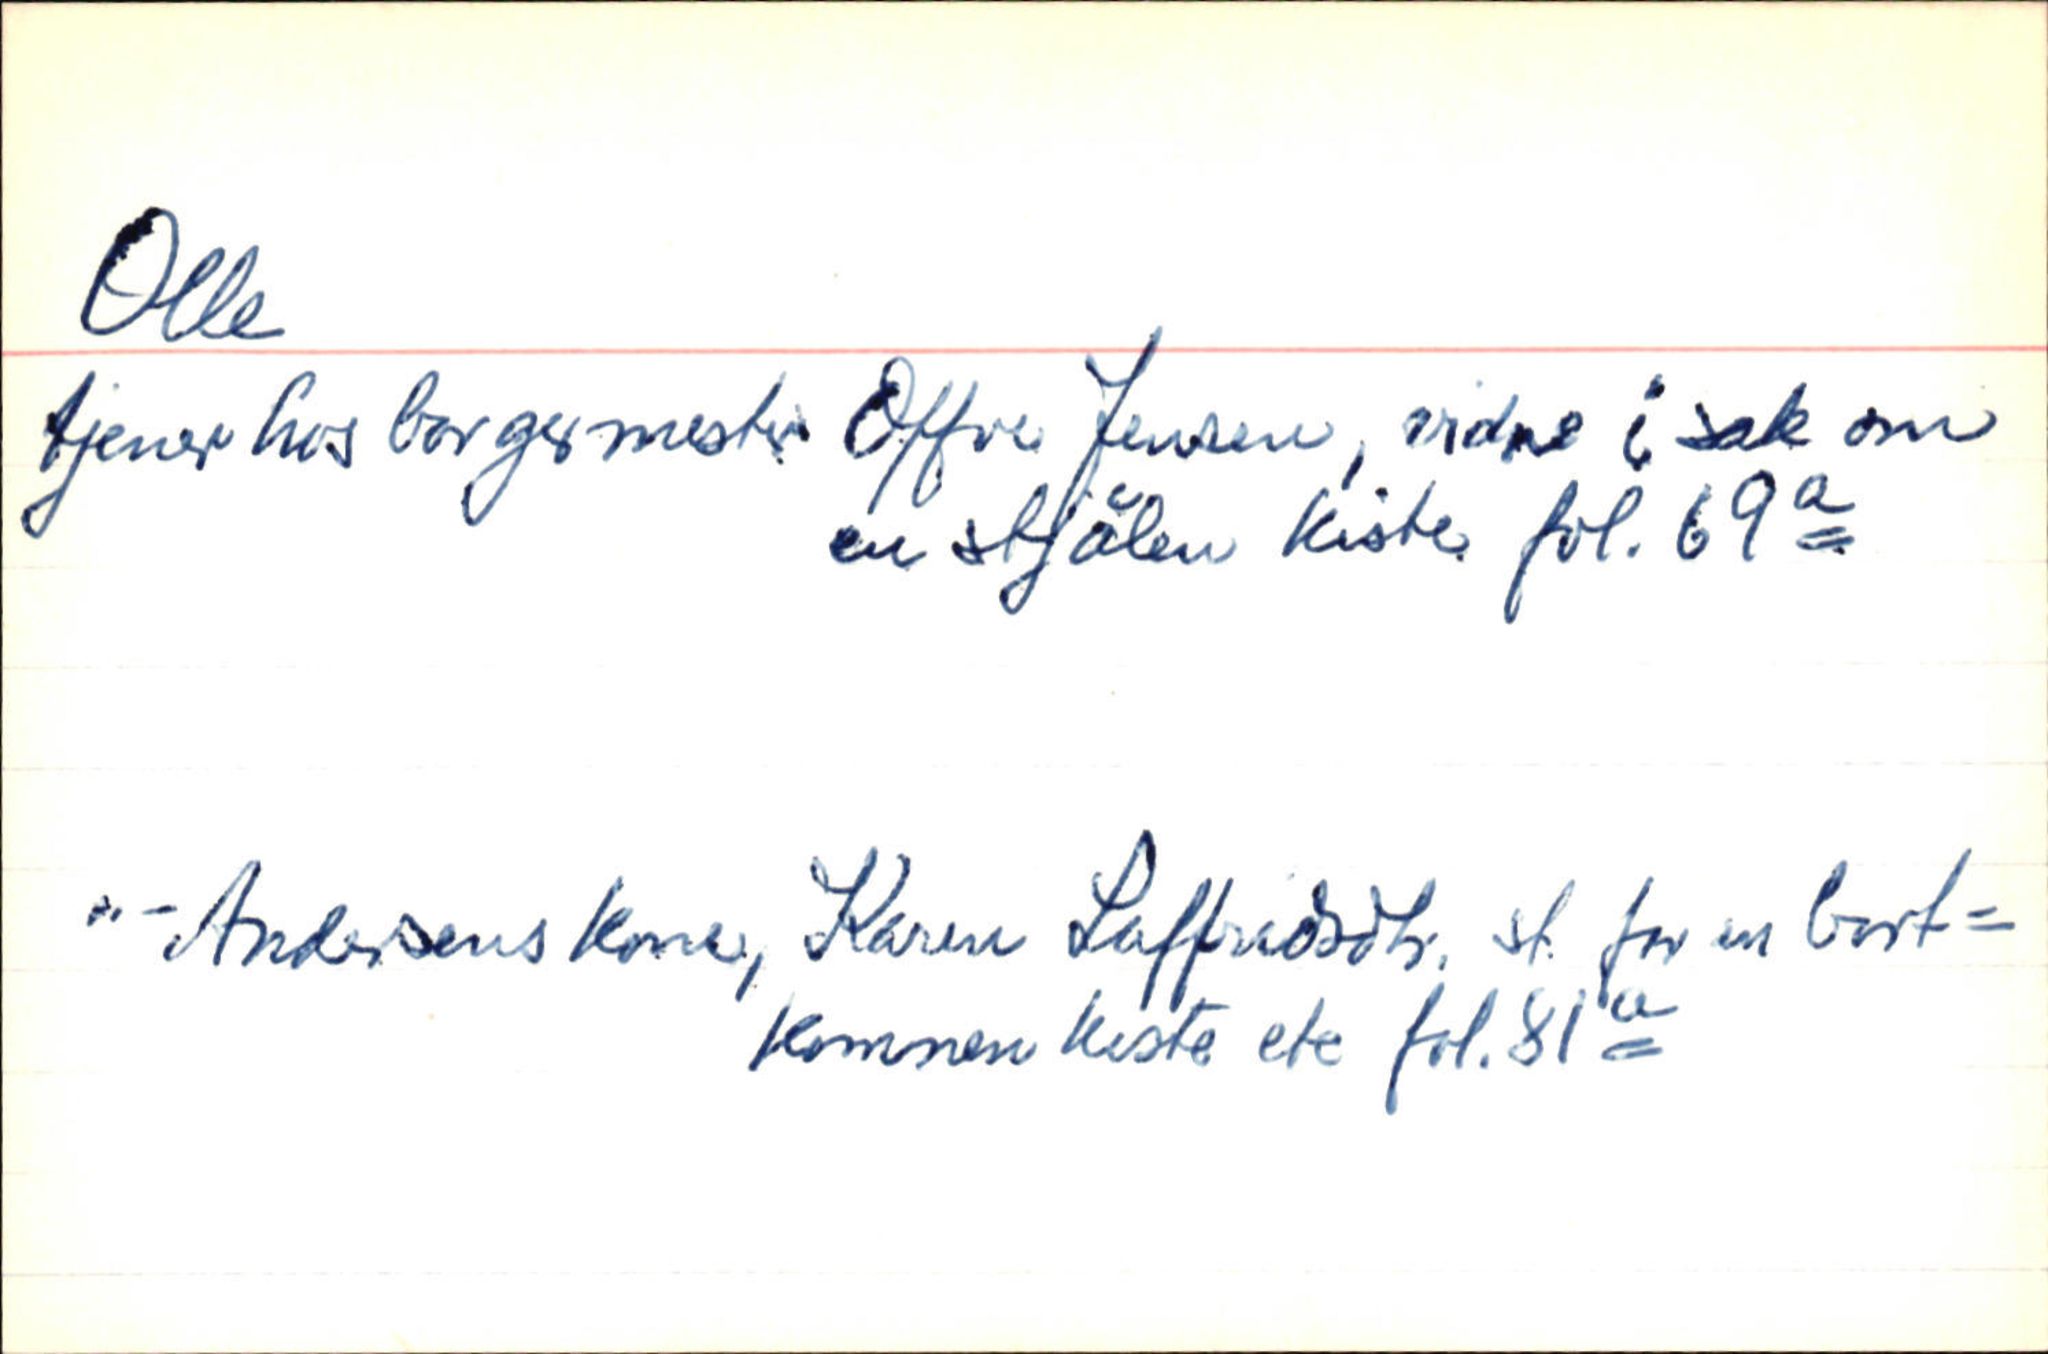 Olle
tjener hos borgermester Offve Jensen, vidne i sak om
en stjålen kiste fol. 69 a
"- Andersens kone, Karen Laffridsdtr. st. for en bort=
kommen kiste etc fol. 81 a